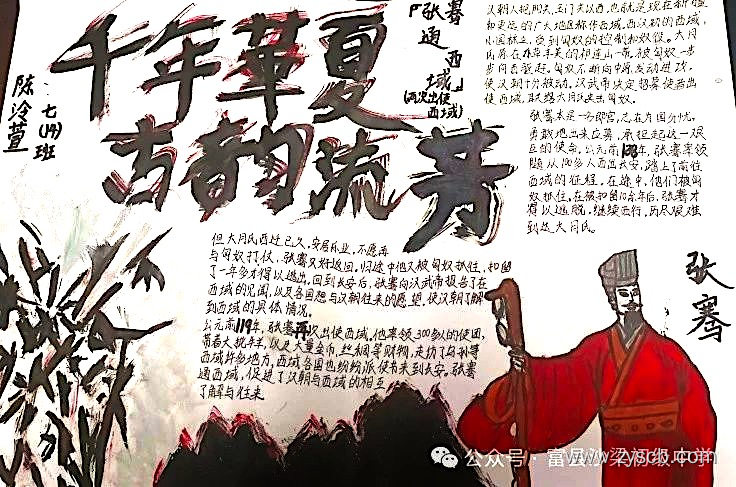 千年華夏
古韵流芳
『张骞
通西
域』
(两次出使
西域)
陈泠萱
七(卅)班
汉朝人把阳关、玉门关以西,也就是现在新疆
和更远的广大地区称作西域。西汉初的西域,
小国林立,受到匈奴的控制和奴役。大月
氏原在敦煌、祁连山一带,被匈奴一步
步向西驱赶。匈奴不断向中原发动进攻,
使汉朝十分被动。汉武帝决定招募使者出
使西域,联络大月氏夹击匈奴。
张骞本是一名郎官,志在为国分忧,
勇敢地出来应募,承担起这一艰
巨的使命。公元前138年,张骞率领
随从100多人西出长安,踏上了前往
西域的征程。在途中,他们被匈
奴抓住,在被扣留10余年后,张骞才
得以逃脱,继续西行,历尽艰难
到达大月氏。
但大月氏西迁已久,安居乐业,不愿再
与匈奴打仗,张骞只好返回。归途中他又被匈奴抓住,扣留
了一年多才得以逃出。回到长安后,张骞向汉武帝报告了在
西域的见闻,以及各国想与汉朝往来的愿望,使汉朝了解
到西域的具体情况。
公元前119年,张骞再次出使西域。他率领300多人的使团,
带着大批牛羊,以及大量金币、丝绸等财物,走访了乌孙等
西域许多地方,西域各国也纷纷派使节来到长安。张骞
通西域,促进了汉朝与西域的相互
了解与往来
张骞
公众号·富
初级中学
www.zyscjj.com